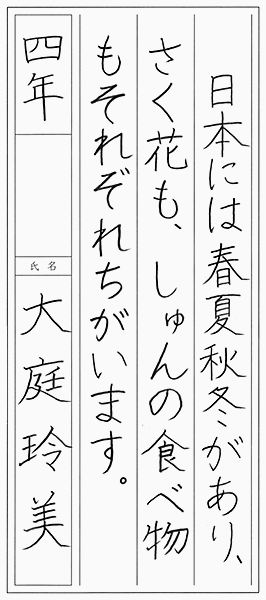 日本には春夏秋冬があり、
さく花も、しゅんの食べ物
もそれぞれちがいます。
四年
氏名
大庭玲美